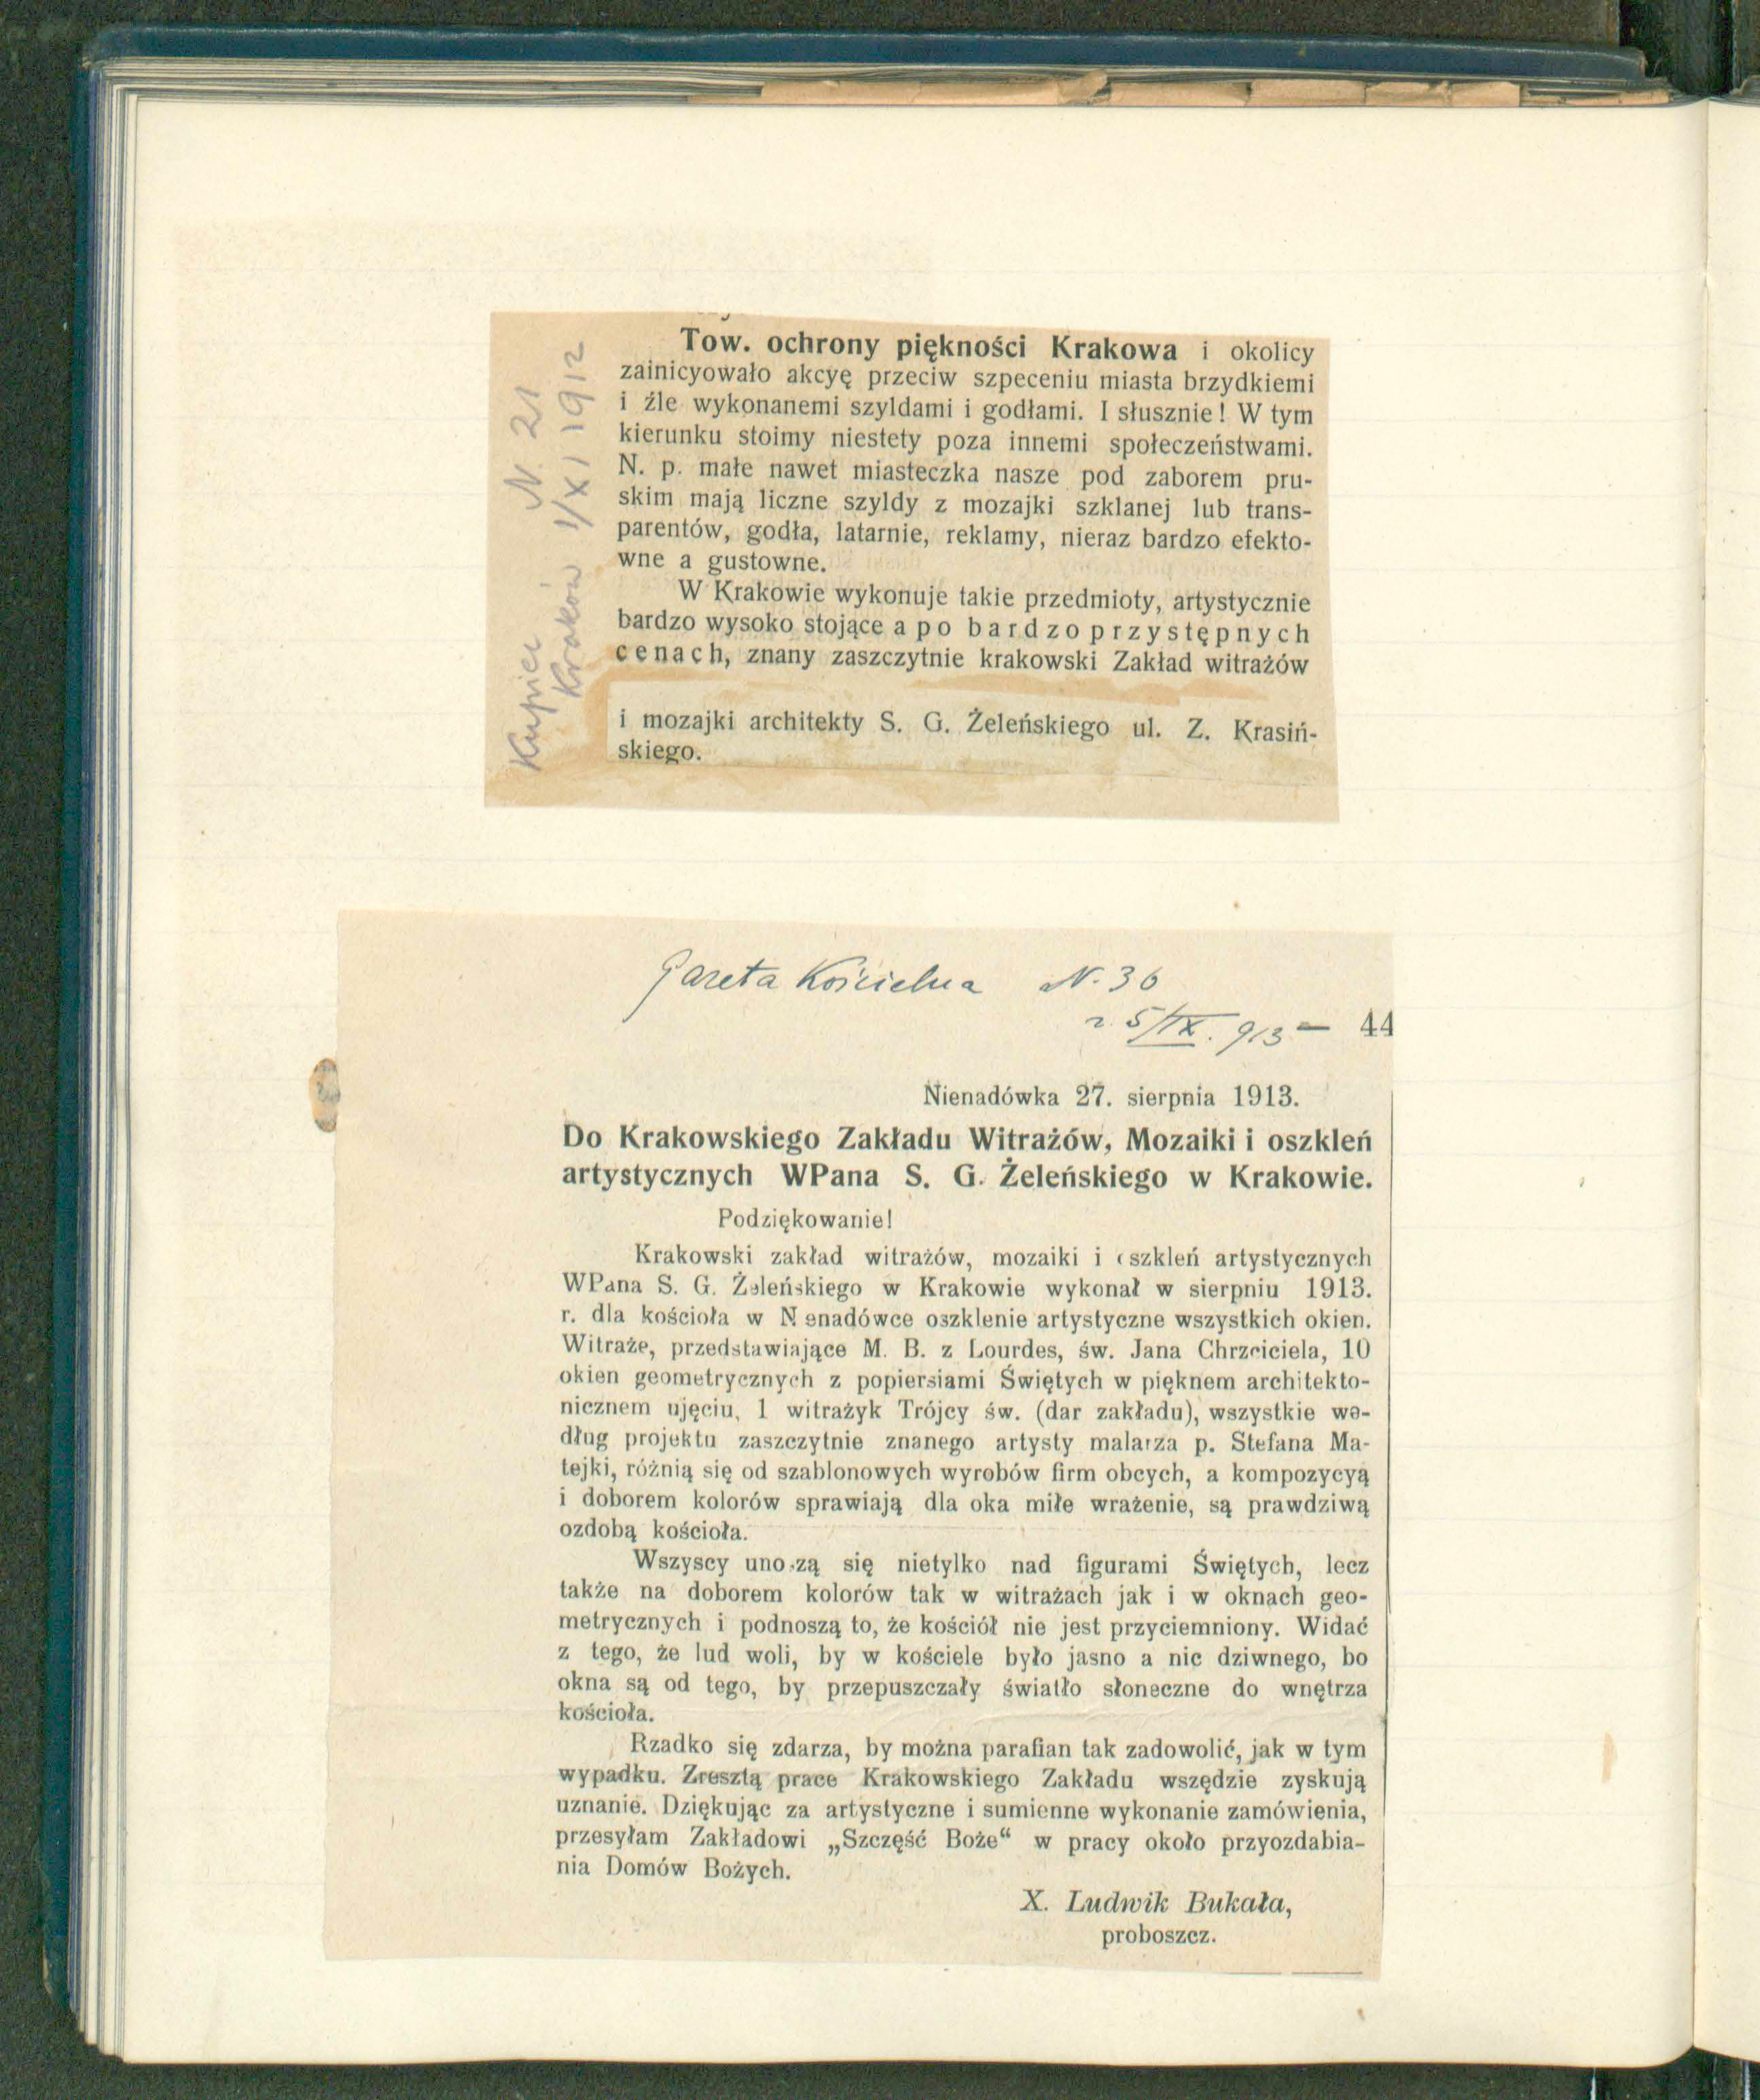 Kupiec N. 21
Kraków 1/XI 1912
Tow. ochrony piękności Krakowa i okolicy
zainicyowało akcyę przeciw szpeceniu miasta brzydkiemi
i źle wykonanemi szyldami i godłami. I słusznie! W tym
kierunku stoimy niestety poza innemi społeczeństwami.
N. p. małe nawet miasteczka nasze pod zaborem pru-
skim mają liczne szyldy z mozajki szklanej lub trans-
parentów, godła, latarnie, reklamy, nieraz bardzo efekto-
wne a gustowne.
W Krakowie wykonuje takie przedmioty, artystycznie
bardzo wysoko stojące a po bardzo przystępnych
cenach, znany zaszczytnie krakowski Zakład witrażów
i mozajki architekty S. G. Żeleńskiego ul. Z. Krasiń-
skiego.
Gazeta Kościelna N. 36
z 5/IX. 913 — 44
Nienadówka 27. sierpnia 1913.
Do Krakowskiego Zakładu Witrażów, Mozaiki i oszkleń
artystycznych WPana S. G. Żeleńskiego w Krakowie.
Podziękowanie!
Krakowski zakład witrażów, mozaiki i oszkleń artystycznych
WPana S. G. Żeleńskiego w Krakowie wykonał w sierpniu 1913.
r. dla kościoła w N enadówce oszklenie artystyczne wszystkich okien.
Witraże, przedstawiające M. B. z Lourdes, św. Jana Chrzciciela, 10
okien geometrycznych z popiersiami Świętych w pięknem architekto-
nicznem ujęciu, 1 witrażyk Trójcy św. (dar zakładu), wszystkie we-
dług projektu zaszczytnie znanego artysty malarza p. Stefana Ma-
tejki, różnią się od szablonowych wyrobów firm obcych, a kompozycyą
i doborem kolorów sprawiają dla oka miłe wrażenie, są prawdziwą
ozdobą kościoła.
Wszyscy unoszą się nietylko nad figurami Świętych, lecz
także na doborem kolorów tak w witrażach jak i w oknach geo-
metrycznych i podnoszą to, że kościół nie jest przyciemniony. Widać
z tego, że lud woli, by w kościele było jasno a nic dziwnego, bo
okna są od tego, by przepuszczały światło słoneczne do wnętrza
kościoła.
Rzadko się zdarza, by można parafian tak zadowolić, jak w tym
wypadku. Zresztą prace Krakowskiego Zakładu wszędzie zyskują
uznanie. Dziękując za artystyczne i sumienne wykonanie zamówienia,
przesyłam Zakładowi „Szczęść Boże“ w pracy około przyozdabia-
nia Domów Bożych.
X. Ludwik Bukała,
proboszcz.